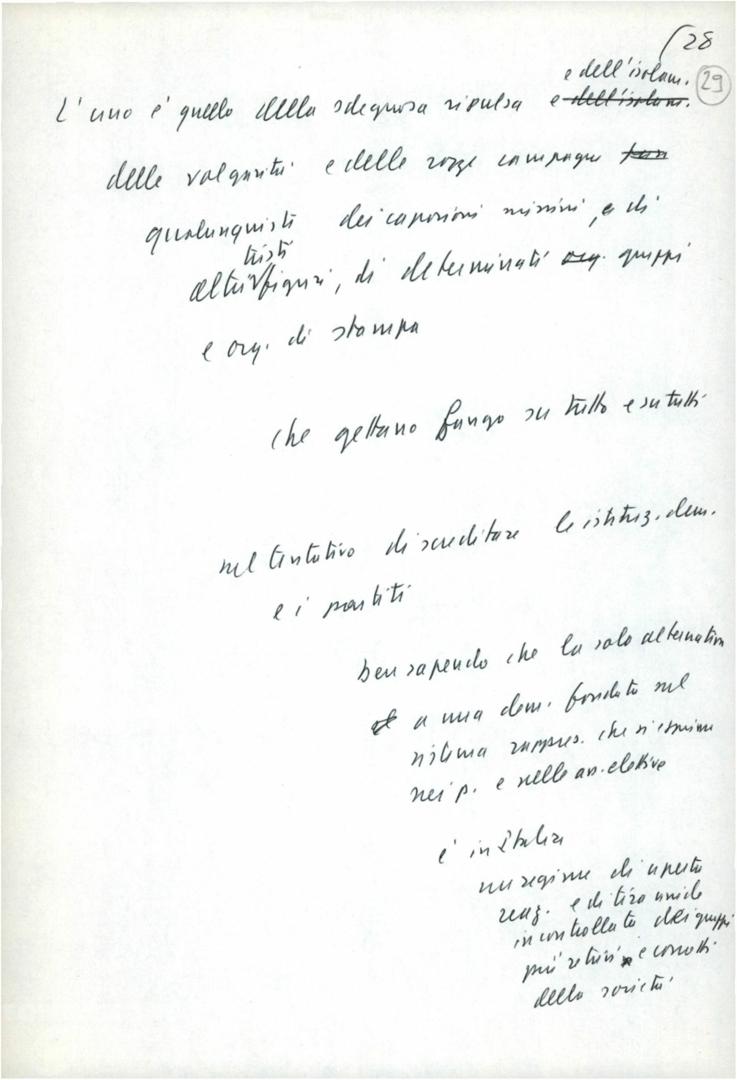 28
29
e dell'isolam.
L'uno è quello della sdegnosa ripulsa e dell'isolam.
delle volgarità e delle rozze campagne
qualunquisti dei caporioni missini, e di
tristi
altri figuri, di determinati org. gruppi
e org. di stampa
che gettano fango su tutto e su tutti
nel tentativo di screditare le istituz. dem.
e i partiti
ben sapendo che la sola alternativa
a una dem. fondata sul
sistema rappres. che si esprime
nei p. e nelle ass. elettive
è in Italia
un regime di aperta
reaz. e di
incontrollata dei gruppi
più retrivi e corrotti
della società